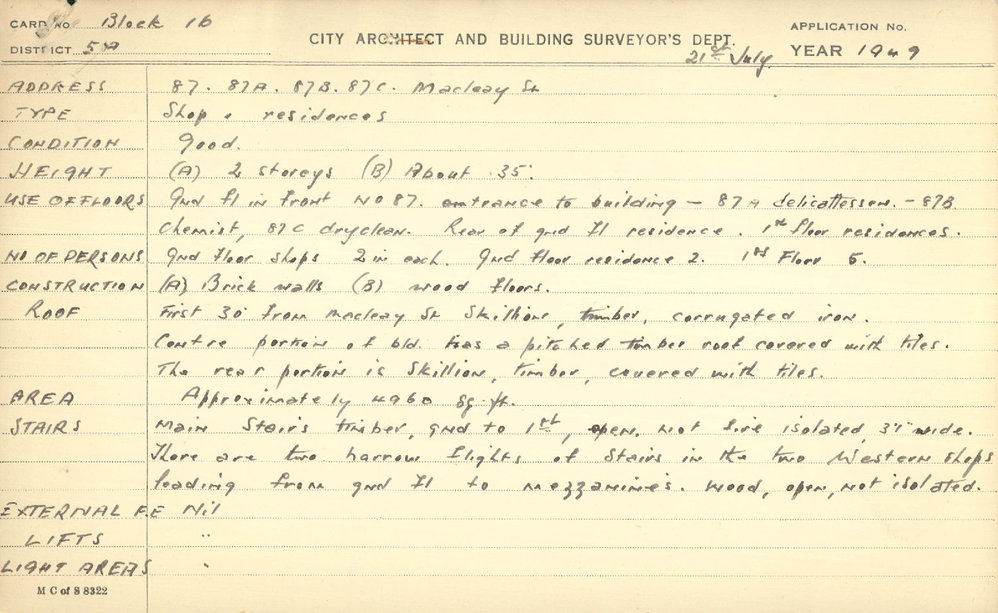 CARD No. Block 16
DISTRICT 5A
CITY ARCHITECT AND BUILDING SURVEYOR'S DEPT.
APPLICATION No.
21st July YEAR 1949
ADDRESS 87. 87A. 87B. 87C. Macleay St
TYPE Shop & residences
CONDITION Good.
HEIGHT (A) 2 storeys (B) About 35'
USE OF FLOORS Gnd fl in front No 87. entrance to building – 87A delicatessen. – 87B.
Chemist, 87C dryclean. Rear of gnd fl residence. 1st floor residences.
NO OF PERSONS Gnd floor shops 2 in each. Gnd floor residence 2. 1st Floor 5.
CONSTRUCTION (A) Brick walls (B) wood floors.
ROOF First 30' from Macleay St Skillion, timber, corrugated iron.
Centre portion of bld. has a pitched timber roof covered with tiles.
The rear portion is Skillion, timber, covered with tiles.
AREA Approximately 4960 sq. ft.
STAIRS Main Stairs timber, gnd to 1st, open. not fire isolated, wide.
There are two narrow flights of Stairs in the two Western Shops
leading from gnd fl to mezzanines. wood, open, not isolated.
EXTERNAL F.E Nil
LIFTS "
LIGHT AREAS "
M C of S 8322